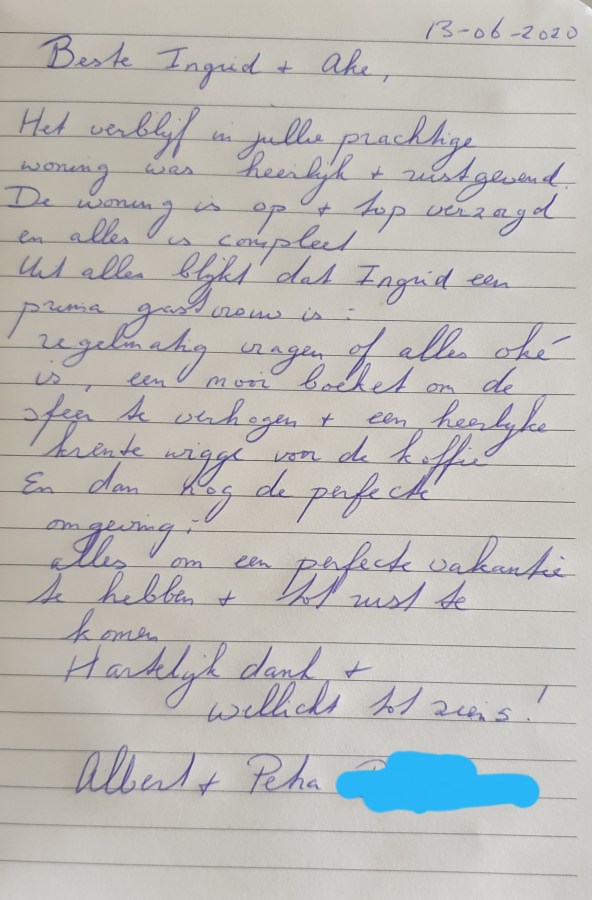 13-06-2020
Beste Ingrid + Ake,
Het verblijf in jullie prachtige
woning was heerlijk + rustgevend.
De woning is op + top verzorgd
en alles is compleet
Uit alles blijkt dat Ingrid een
prima gastvrouw is :
regelmatig vragen of alles oké
is, een mooi boeket om de
sfeer te verhogen + een heerlijke
krente wigge voor de koffie
En dan nog de perfecte
omgeving ;
alles om een perfecte vakantie
te hebben + tot rust te
komen
Hartelijk dank +
wellicht tot ziens!
Albert + Petra